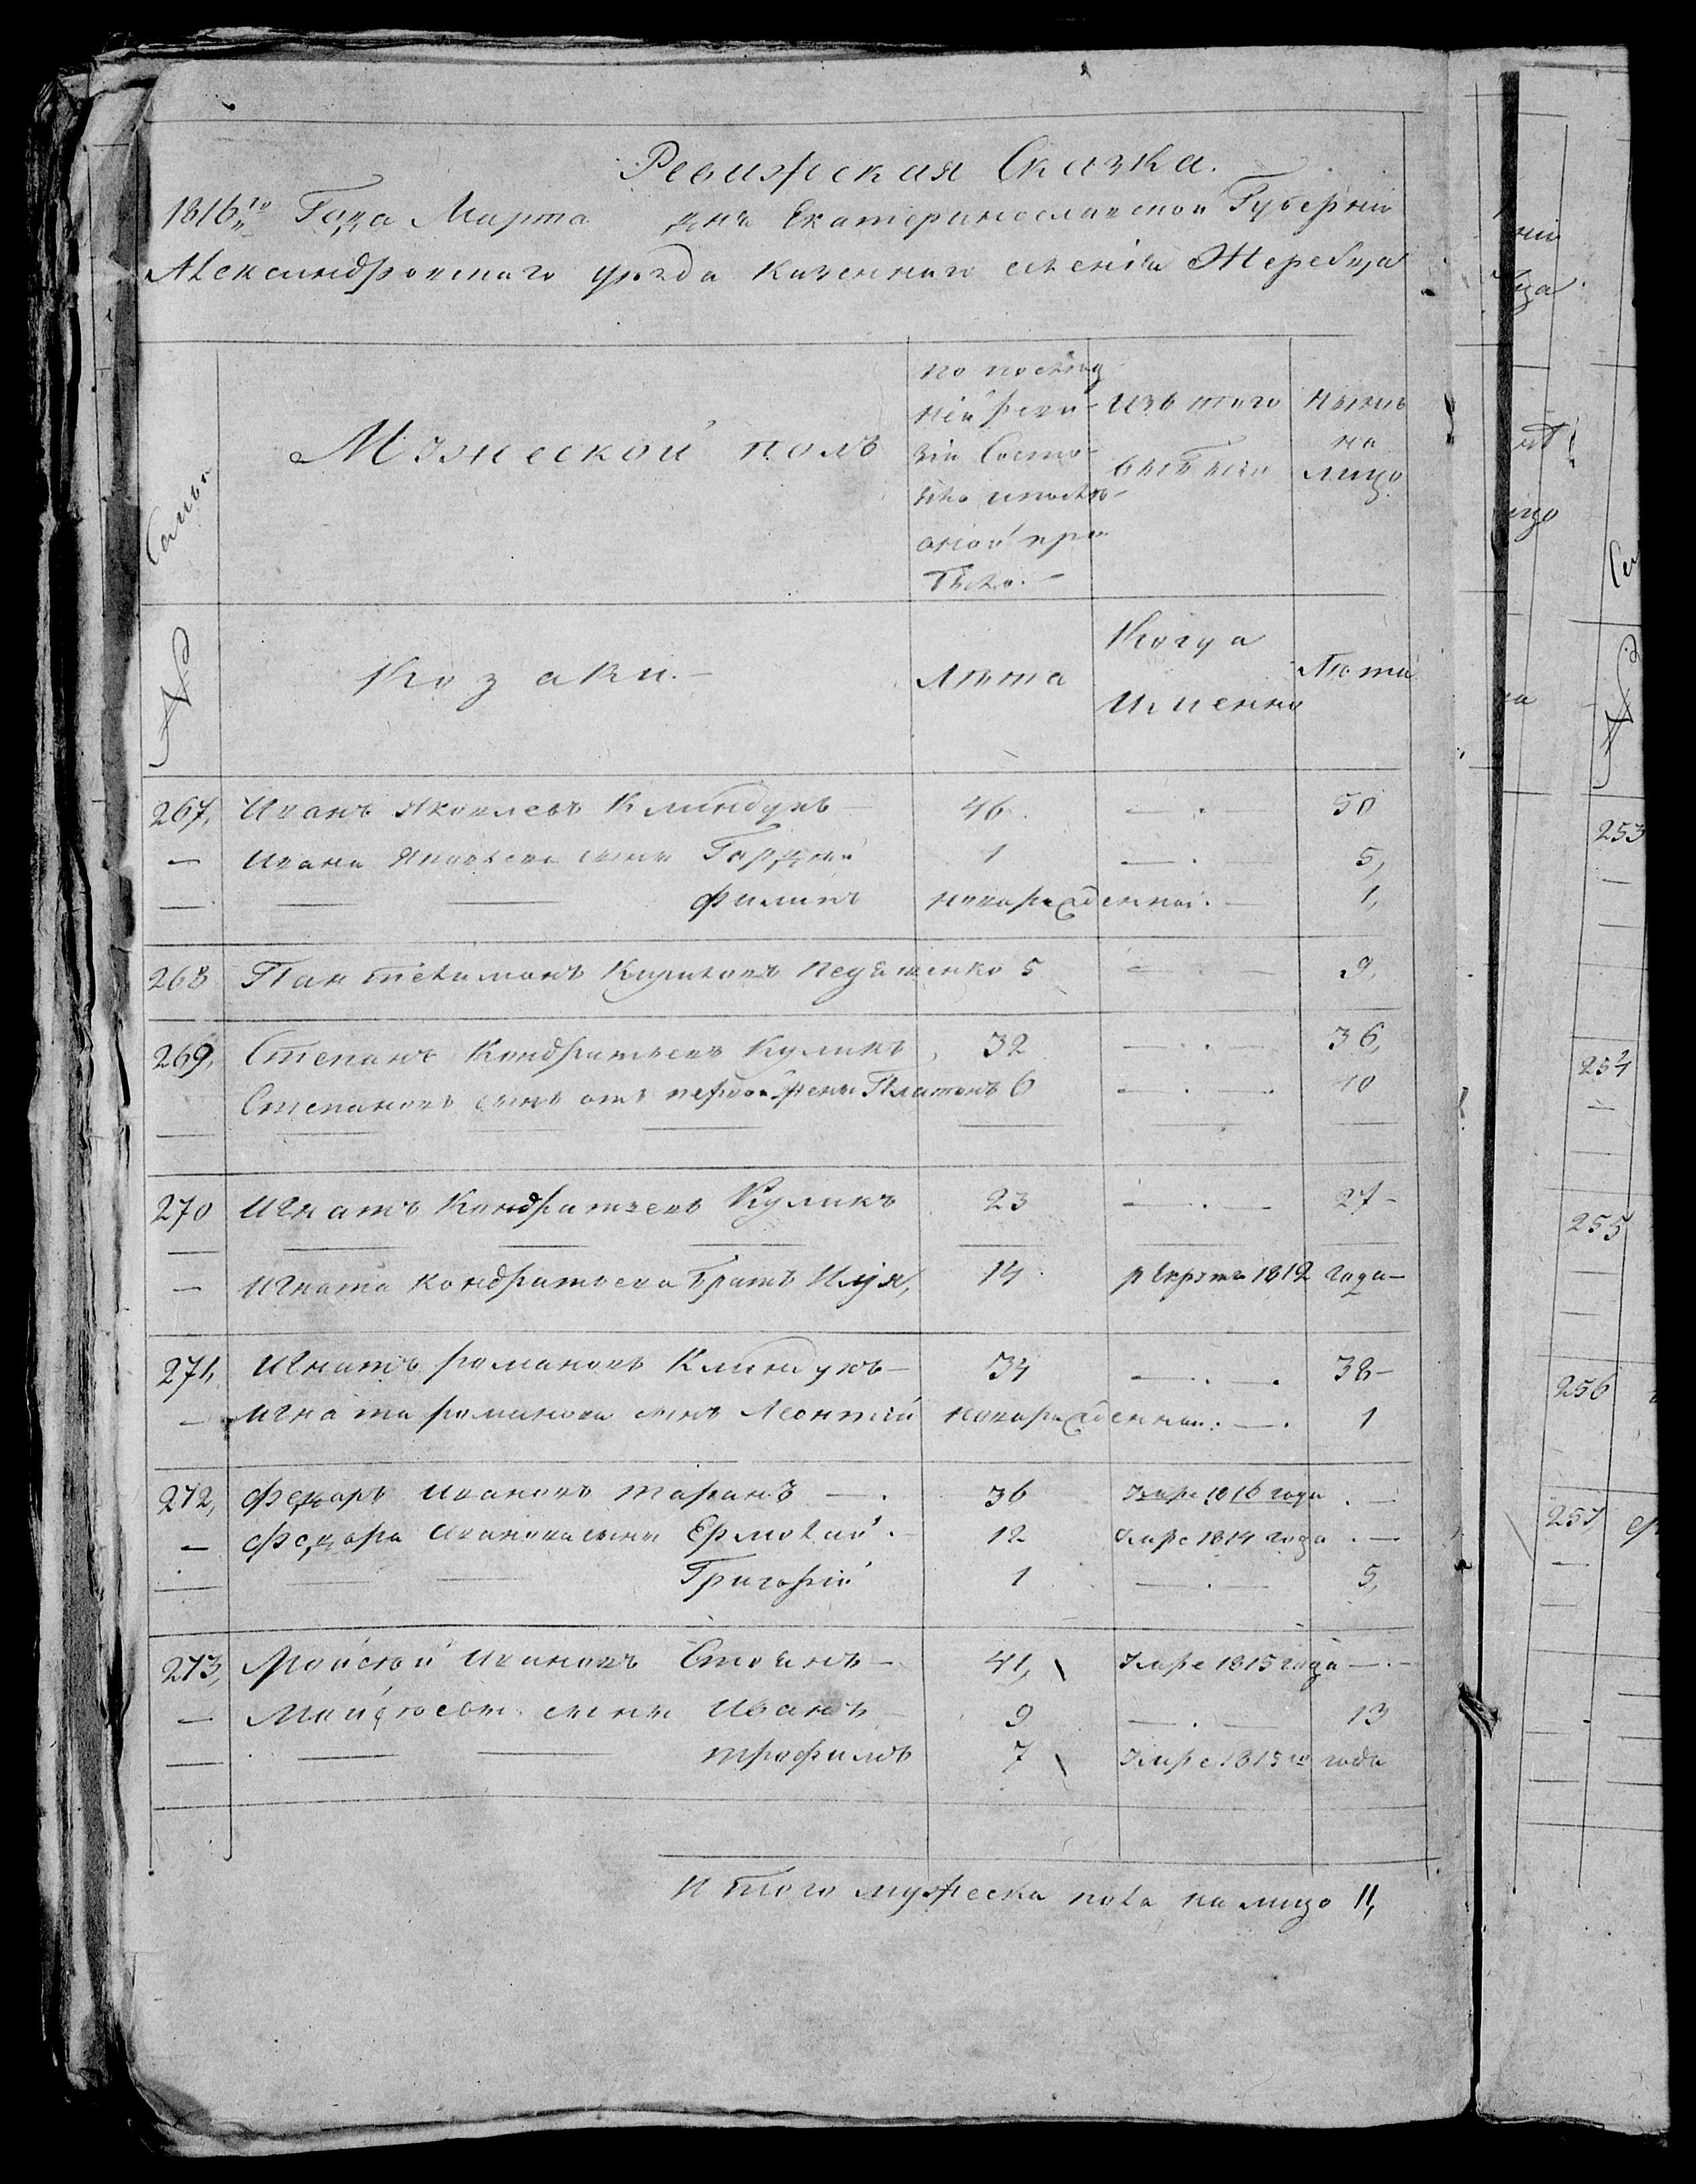 Ревижская Сказка.
1816го Года Марта дня Екатеринославской Губернiи
Александровского уѣзда казенного селенiя Жеребца
Семьи
Мужеской полъ
по послѣд
ней реви-
зiи Состо-
яло и послѣ
оной при
было.-
Изъ того
выбыло
Нынѣ
на
лицо
№
Козаки.-
Лѣта
Когда
Именно
Лѣта
267, Иванъ Яковлевъ Климдукъ 46. — . — 50
— Ивана Яковлева сынъ Гордѣй 1 — . 5,
— — — Филипъ новорожденной. — 1,
268 Пантелимонъ Кириловъ 5 — . — 9,
269, Степанъ Кондратьевъ Куликъ 32 — . — 36,
Степановъ сынъ отъ первой жены Платонъ 6 — . — 10
270 Игнатъ Кондратьевъ Куликъ 23 — . — 27-
— Игната Кондратьева братъ Илья, 14 рекрутъ 1812 года-
271, Игнатъ романовъ Климдукъ- 34 — . — . 38-
— Игната романова сынъ Леонтiй новорожденной. — . 1
272, Федоръ Ивановъ таранъ — . 36 Умре 1816 года . —
— Федора Иванова сынъ Ермолай . 12 Умре 1814 года . —
— — — Григорiй 1 — . — 5,
273, Мойсѣй Ивановъ Стоянъ- 41, \ Умре 1815 года — . -
— Мойсѣевы сыны Иванъ 9 — . — 13
— — — трофимъ 7 \ Умре 1813го года
Итого мужеска пола на лицо 11,
253
254
255
256
257